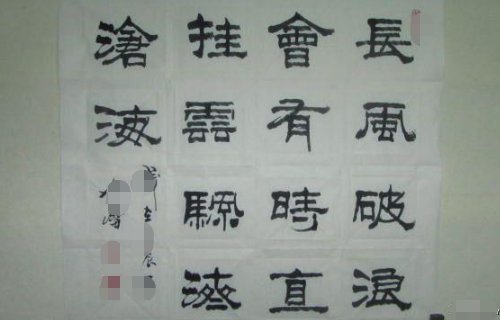 長風破浪
會有時直
挂雲颿濟
滄海